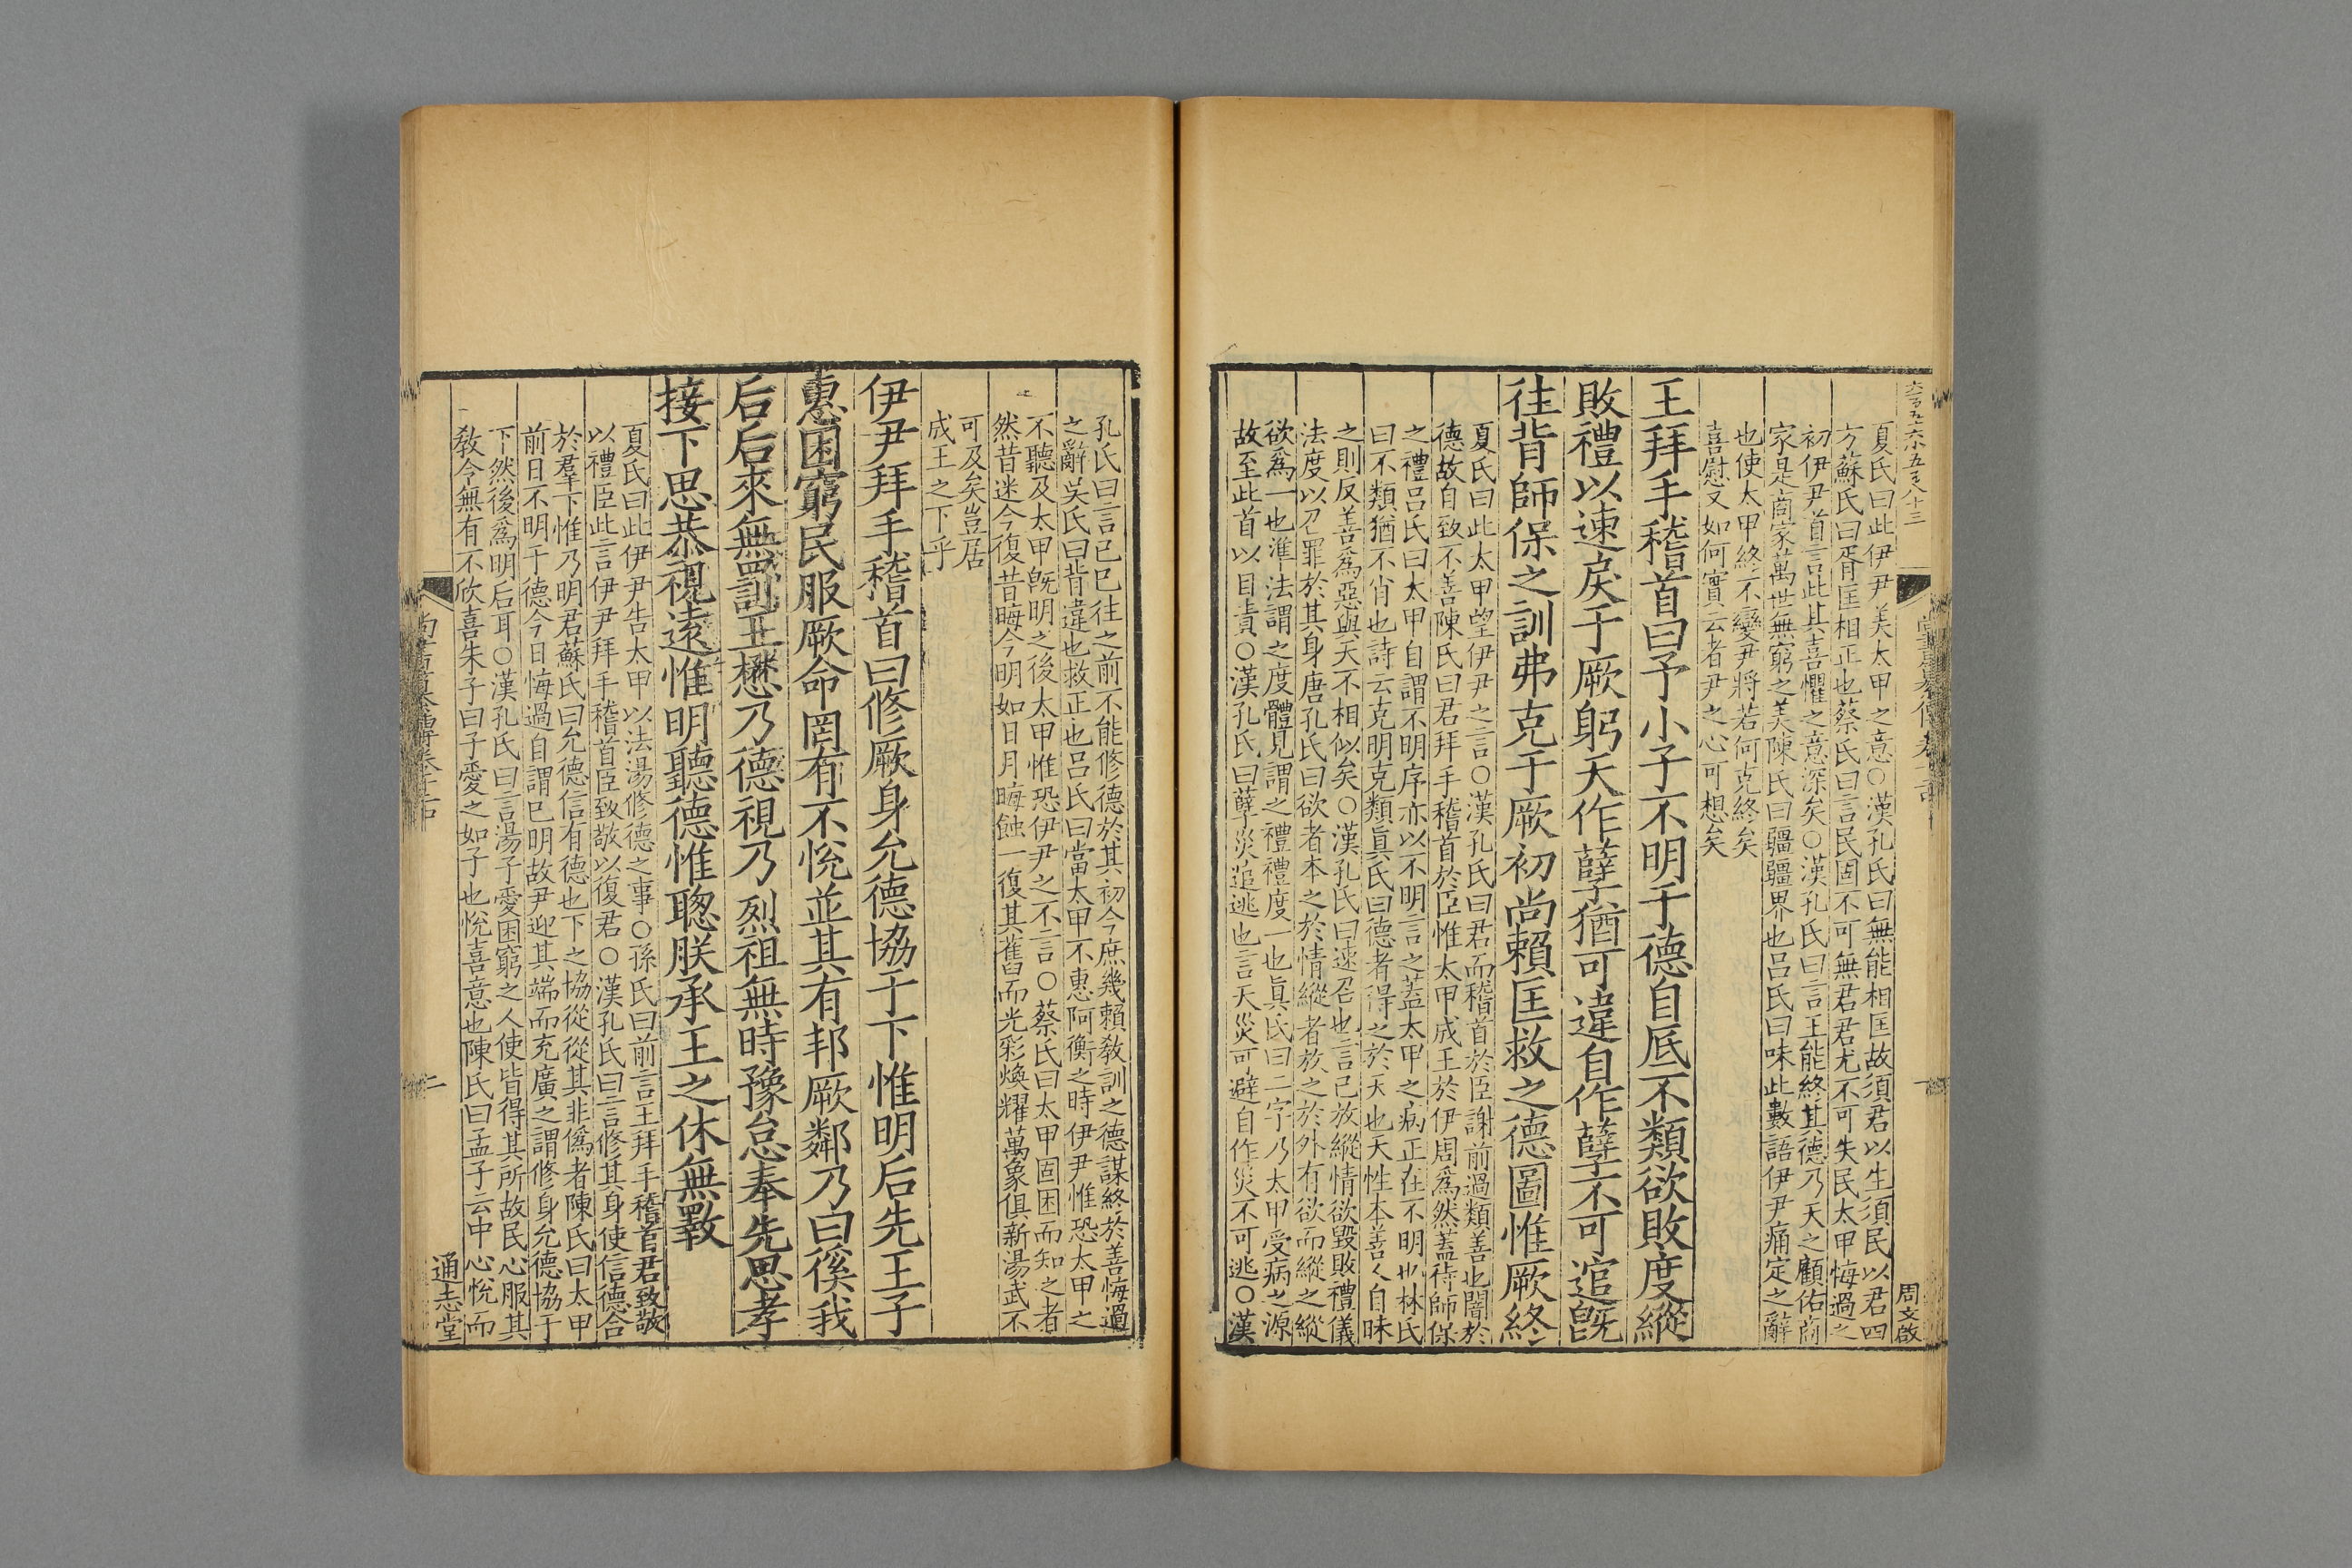 夏氏曰此伊尹美太甲之意○漢孔氏曰無能相匡故須君以生須民以君四
方蘇氏曰胥匡相正也蔡氏曰言民固不可無君君尤不可失民太甲悔過之
初伊尹首言此其喜懼之意深矣○漢孔氏曰言王能終其德乃天之顧佑商
家是商家萬世無窮之美陳氏曰疆疆界也呂氏曰味此數語伊尹痛定之辭
也使太甲終不變尹將若何克終矣
喜慰又如何實云者尹之心可想矣
王拜手稽首曰予小子不明于德自厎不類欲敗度縱
敗禮以速戾于厥躬天作孽猶可違自作孽不可逭旣
往背師保之訓弗克于厥初尚賴匡救之德圖惟厥終
夏氏曰此太甲望伊尹之言○漢孔氏曰君而稽首於臣謝前過類善也闇於
德故自致不善陳氏曰君拜手稽首於臣惟太甲成王於伊周爲然蓋待師保
之禮呂氏曰太甲自謂不明序亦以不明言之蓋太甲之病正在不明也林氏
曰不類猶不肖也詩云克明克類眞氏曰德者得之於天也天性本善人自昧
之則反善爲惡與天不相似矣○漢孔氏曰速召也言已放縱情欲毀敗禮儀
法度以召罪於其身唐孔氏曰欲者本之於情縱者放之於外有欲而縱之縱
欲爲一也準法謂之度體見謂之禮禮度一也眞氏曰二字乃太甲受病之源
故至此首以目責○漢孔氏曰孽災逭逃也言天災可避自作災不可逃○漢
周文啟
孔氏曰言已已往之前不能修德於其初今庶幾賴敎訓之德謀終於善悔過
之辭吳氏曰背違也救正也呂氏曰當太甲不惠阿衡之時伊尹惟恐太甲之
不聽及太甲旣明之後太甲惟恐伊尹之不言○蔡氏曰太甲固困而知之者
然昔迷今復昔晦今明如日月晦蝕一復其舊而光彩煥耀萬象俱新湯武不
可及矣豈居
成王之下乎
伊尹拜手稽首曰修厥身允德協于下惟明后先王子
惠困窮民服厥命罔有不悅並其有邦厥鄰乃曰徯我
后后來無罰王懋乃德視乃烈祖無時豫怠奉先思孝
接下思恭視遠惟明聽德惟聦朕承王之休無斁
夏氏曰此伊尹告太甲以法湯修德之事○孫氏曰前言王拜手稽首君致敬
以禮臣此言伊尹拜手稽首臣致敬以復君○漢孔氏曰言修其身使信德合
於羣下惟乃明君蘇氏曰允德信有德也下之協從從其非僞者陳氏曰太甲
前日不明于德今日悔過自謂已明故尹迎其端而充廣之謂修身允德協于
下然後爲明后耳○漢孔氏曰言湯子愛困窮之人使皆得其所故民心服其
敎令無有不欣喜朱子曰子愛之如子也悅喜意也陳氏曰孟子云中心悅而
二
通志堂